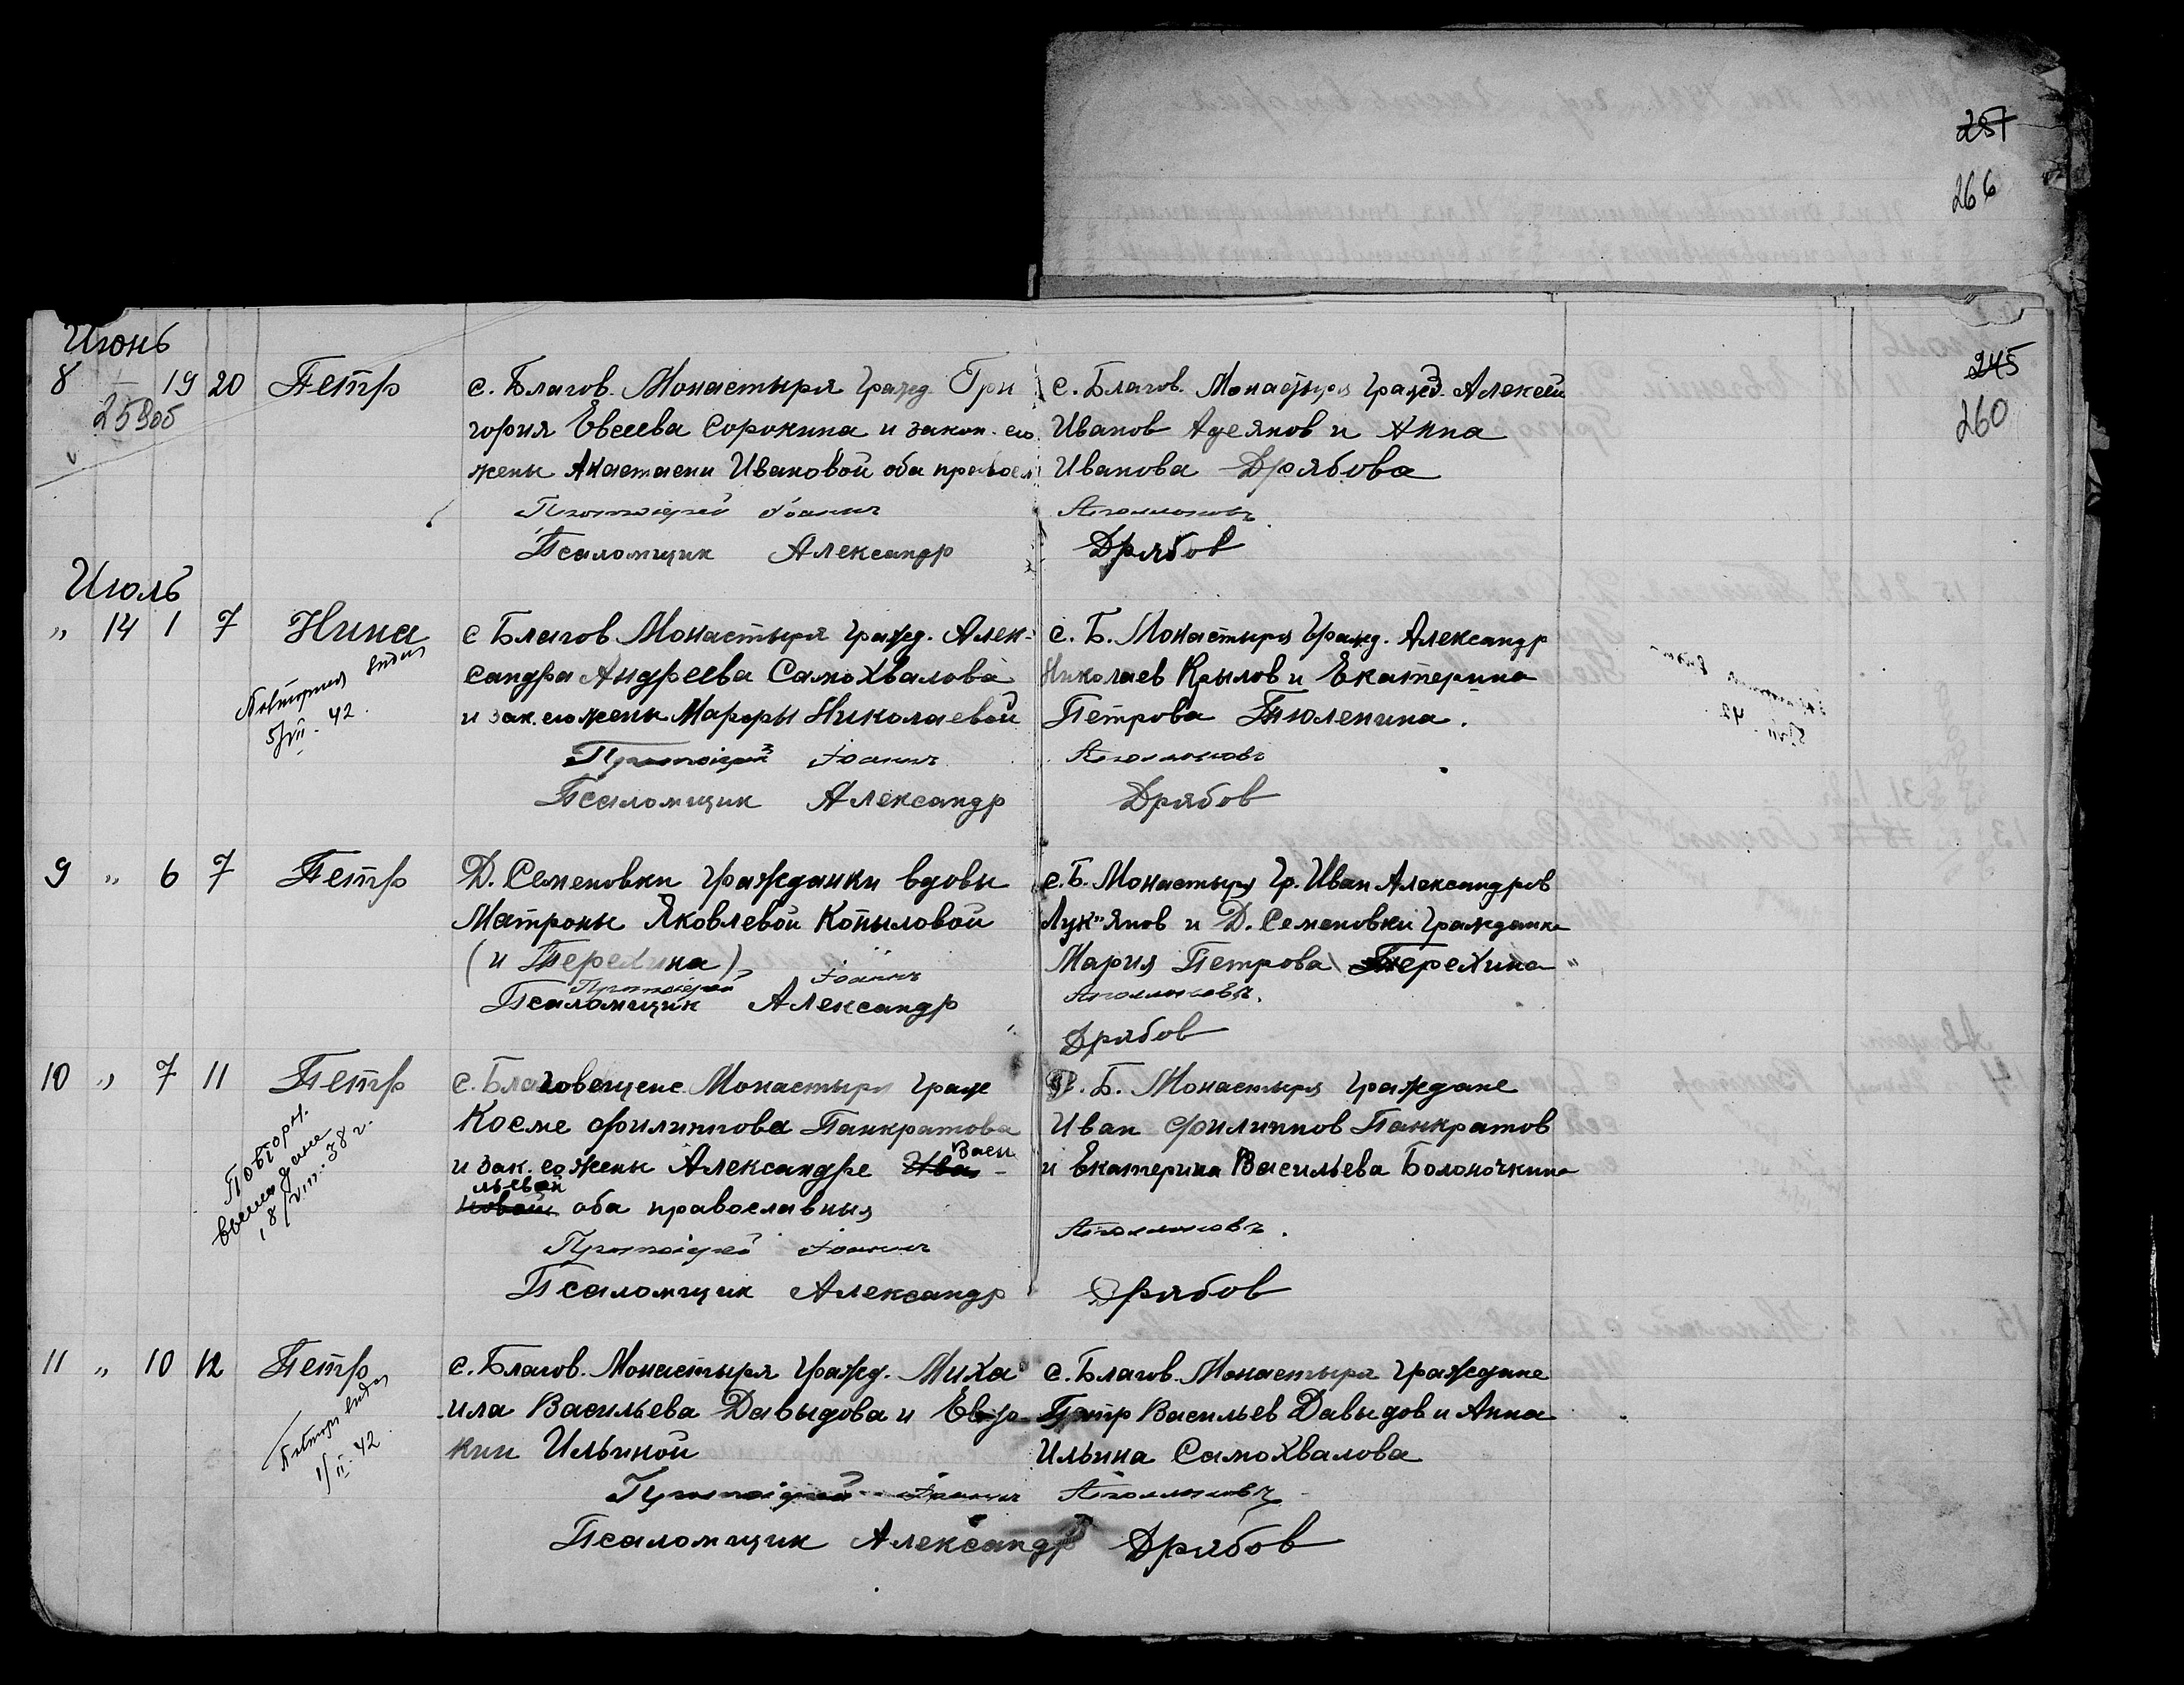 257
266
245
260
Июнь
8 19 20 Петр с. Благов. Монастыря гражд. Гри с. Благов. Монастыря гражд. Алексей
259об гория Евсеева Сорокина и закон. его Иванов Адеянов и Анна
жены Анастасии Ивановой оба правосл Иванова Дрябова
Протоіерей Іоаннъ Аполлоновъ
Псаломщик Александр Дрябов
Июль
„ 14 1 7 Нина с Благов. Монастыря гражд. Алек- с. Б. Монастыря гражд. Александр
сандра Андреева Самохвалова Николаев Крылов и Екатерина
и зак. его жены Марфы Николаевой Петрова Тюленина.
5/VII-42.
Протоіерей Іоаннъ Аполлоновъ
Псаломщик Александр Дрябов
9 „ 6 7 Петр Д. Семеновки гражданки вдовы с. Б. Монастыря гр. Иван Александров
Матроны Яковлевой Копыловой Лук"янов и Д. Семеновки гражданка
(и Терехина) Мария Петрова Терехина
Протоіерей Іоаннъ Аполлоновъ.
Псаломщик Александр Дрябов
10 „ 7 11 Петр с. Благовещенс Монастыря граж с. Б. Монастыря граждане
Косме Филиппова Панкратова Иван Филиппов Панкратов
и зак. его жены Александре Ива Васи и Екатерина Васильева Болоночкина
новой льевой оба православныя
Повторн.
18/VIII-38 г.
Протоіерей Іоаннъ Аполлоновъ.
Псаломщик Александр Дрябов
11 „ 10 12 Петр с. Благов. Монастыря гражд. Миха с. Благов. Монастыря граждане
ила Васильева Давыдова и Евдо Петр Васильев Давыдов и Анна
кии Ильиной Ильина Самохвалова
1/II-42.
Протоіерей Іоаннъ Аполлоновъ
Псаломщик Александр Дрябов